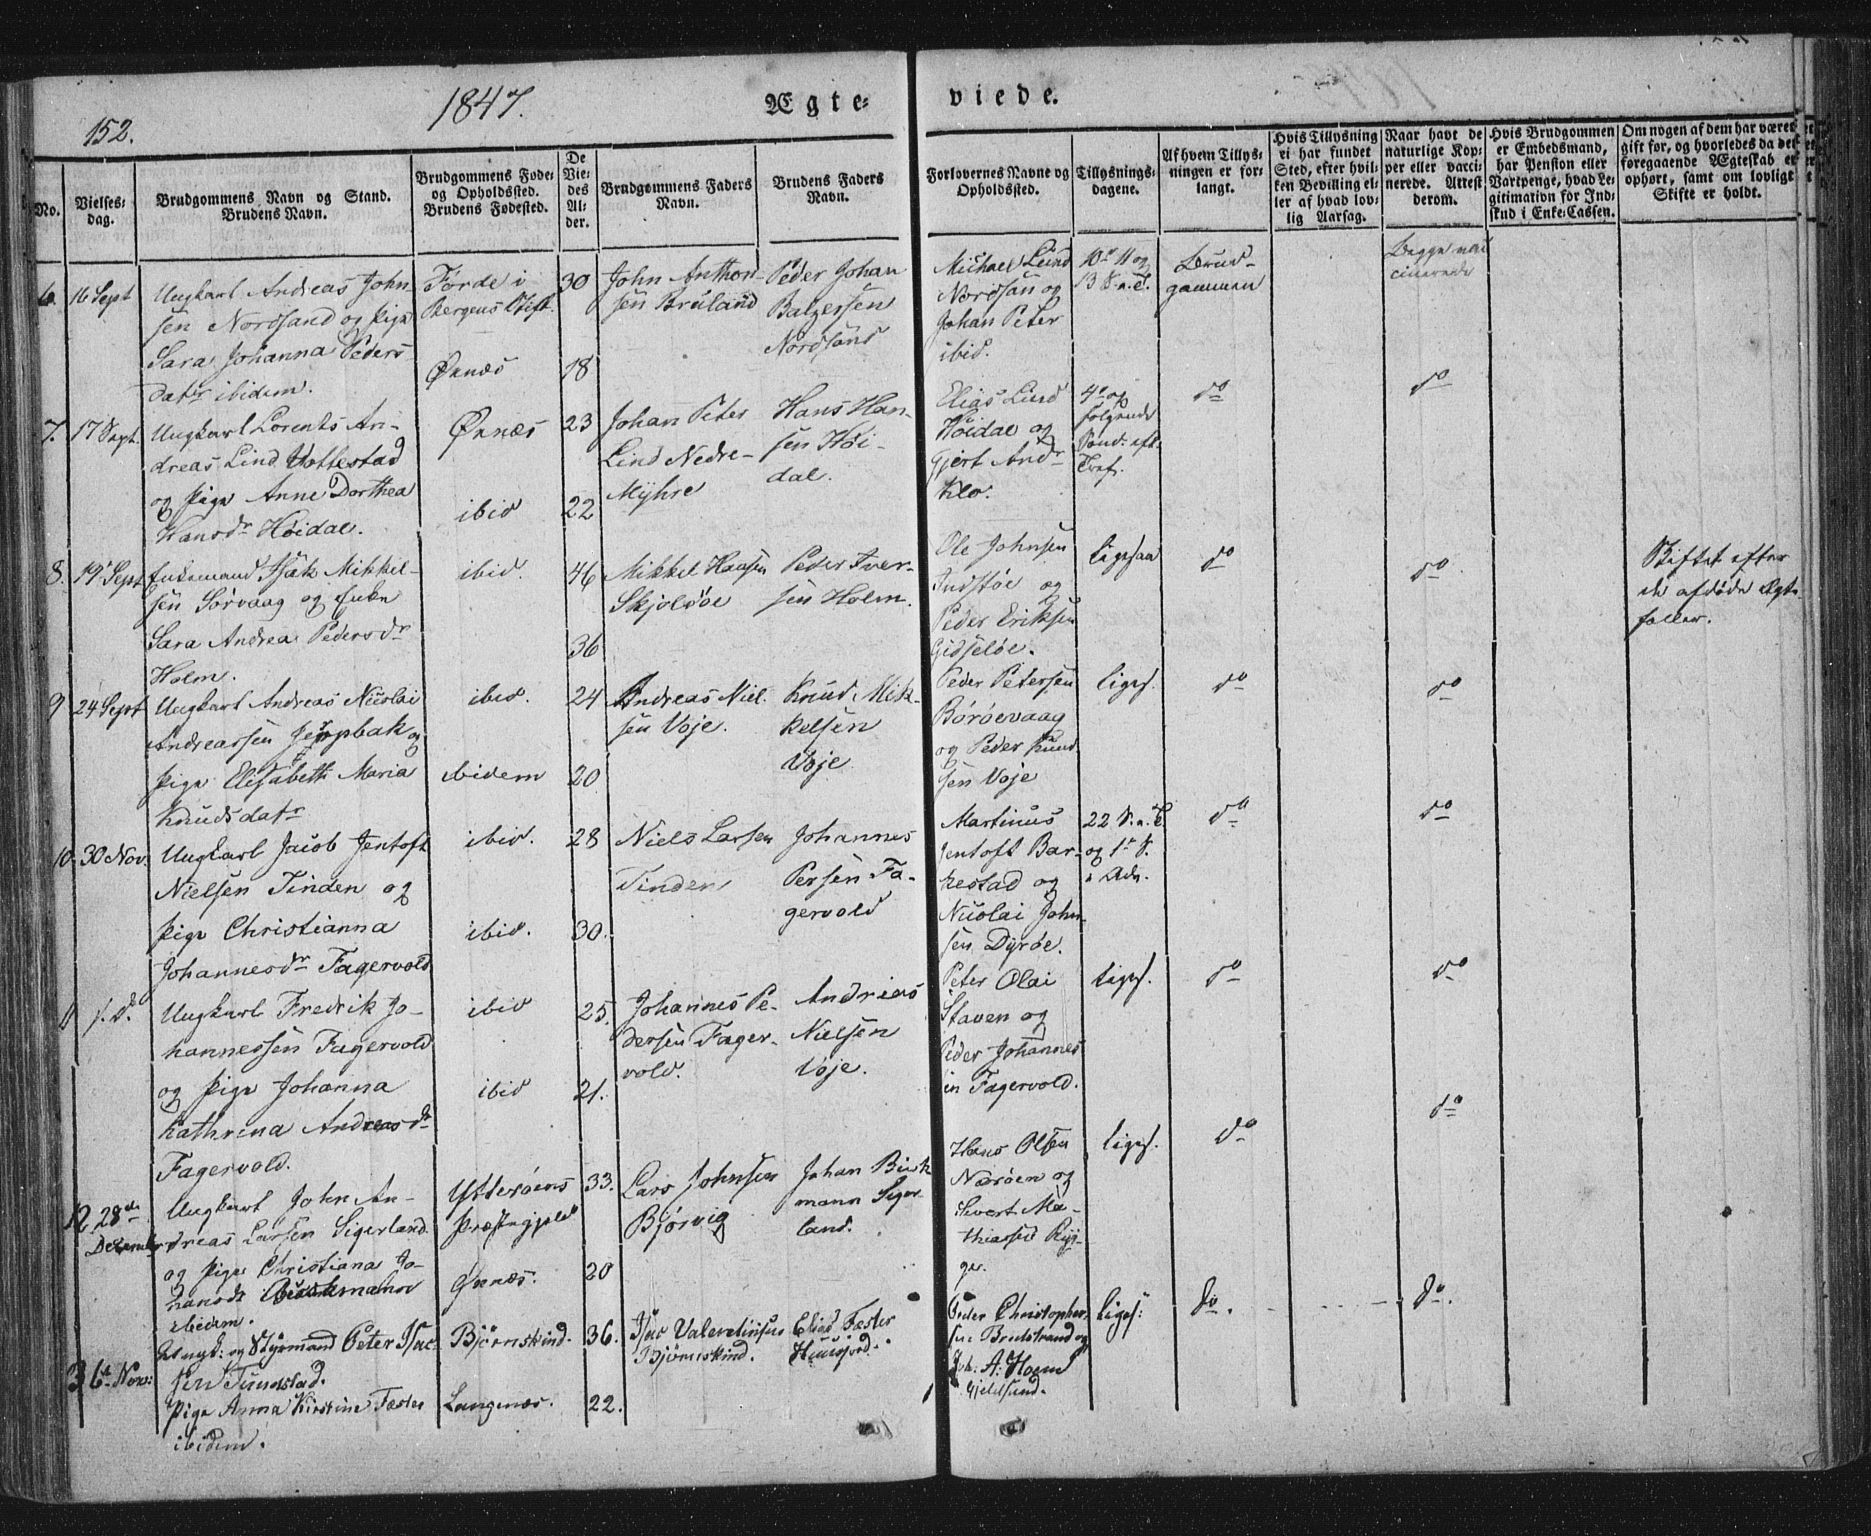 152.
1847.
Ægte-
viede.
No.
Vielses-
dag.
Brudgommens Navn og Stand.
Brudens Navn.
Brudgommens Føde-
og Opholdssted.
Brudens Fødested.
De
Vie-
des
Al-
der.
Brudgommens Faders
Navn.
Brudens Faders
Navn.
Forlovernes Navne og
Opholdssted.
Tillysnings-
dagene.
Af hvem Tillys-
ningen er for-
langt.
Hvis Tillysning
ei har fundet
Sted, efter hvil-
ken Bevilling el-
ler af hvad lov-
lig Aarsag.
Naar havt de
naturlige Kop-
per eller vacci-
nerede. Attest
derom.
Hvis Brudgommen
er Embedsmand,
har Pension eller
Vartpenge, hvad Le-
gitimation for Ind-
skud i Enke-Cassen.
Om nogen af dem har været
gift for, og hvorledes da det
foregaaende Ægteskab er
ophørt, samt om lovligt
Skifte er holdt.
6. 16 Sept
Ungkarl Andreas John-
sen Nordsand og Pige
Sara Johanna Peders
datr ibidem.
Førde i
Bergens Stift.
Øxnæs
30
18
John Anthon-
sen Bruland
Peder Johan
Balzersen
Nordsand
Michael Lund
Nordsan og
Johan Peter
ibid.
10de 11 og
13 S. a. T.
Brud-
gommen
Begge vac
cinerede
7. 17 Sept.
Ungkarl Lorents An-
dreas Lind Vottestad
og Pige Anne Dorthea
Hansdr Høidal.
Øxnæs
ibid
23
22
Johan Peter
Lind Nedre-
Myhre
Hans Han-
sen Høi-
dal.
Elias Lind
Høidal og
Gjert Andr
Klo.
4de og
følgende
Sønd. eft.
Tref.
do
do
8. 19 Sept
Enkemand Isak Mikkel-
sen Sørvaag og Enke
Sara Andrea Pedersdr
Holm.
ibid.
46
36
Mikkel Hansen
Skjolsøe
Peder Iver-
sen Holm.
Ole Johnsen
Indstøe og
Peder Eriksen
Gidseløe.
Ligesaa
do
do
Skiftet efter
de afdøde Ægte
fæller.
9 24 Sept
Ungkarl Andreas Nicolai
Andreassen Jeppbak og
Pige Elisabeth Maria
Knudsdatr
ibid.
ibidem
24
20
Andreas Niel
sen Voje.
Knud Mik-
kelsen
Voje
Peder Petersen
Børøevaag
og Peder Knud
sen Voje
Liges.
do
do
10. 30 Nov.
Ungkarl Jacob Jentoft
Nielsen Tinden og
Pige Christianna
Johannesdr Fagervold
ibid.
ibid.
28
30.
Niels Larsen
Tinden
Johannes
Persen Fa-
gervold
Martinus
Jentoft Bar-
kestad og
Nicolai John
sen Dyrøe.
22 S. a. T.
og 1ste S.
i Adv.
do
do
11 s. d.
Ungkarl Fredrik Jo-
hannessen Fagervold
og Pige Johanna
Kathrina Andreasdr
Fagervold.
ibid
ibid
25.
21.
Johannes Pe-
dersen Fager-
vold.
Andreas
Nielsen
Voje.
Peter Olai
Staven og
Peder Johannes
sen Fagervold.
Liges.
do
do
12 28de
December
Ungkarl John An-
dreas Larsen Sigerland
og Pige Christiana Jo-
hansdr Birkmann
ibidem.
Ytterøens
Præstegjeld
Øxnæs.
33.
20
Lars Johnsen
Bjørvig
Johan Birk
mann Siger-
land.
Hans Olsen
Nærøen og
Sivert Ma-
thiassen Ryg-
ge.
Liges.
do
do
3 6te Nov:
Ungk: og Styrmand Peter Isac-
sen Tunstad.
Pige Anna Kirstine Fæster
ibidem.
Bjørnskind.
Langenæs.
36.
22.
Isac Valentinsen
Bjørnskind.
Elias Fæster
Huusjord.
Peder Christopher-
sen Bredstrand og
Joh. A. Holm
Gjeldsund.
Liges:
do.
do.